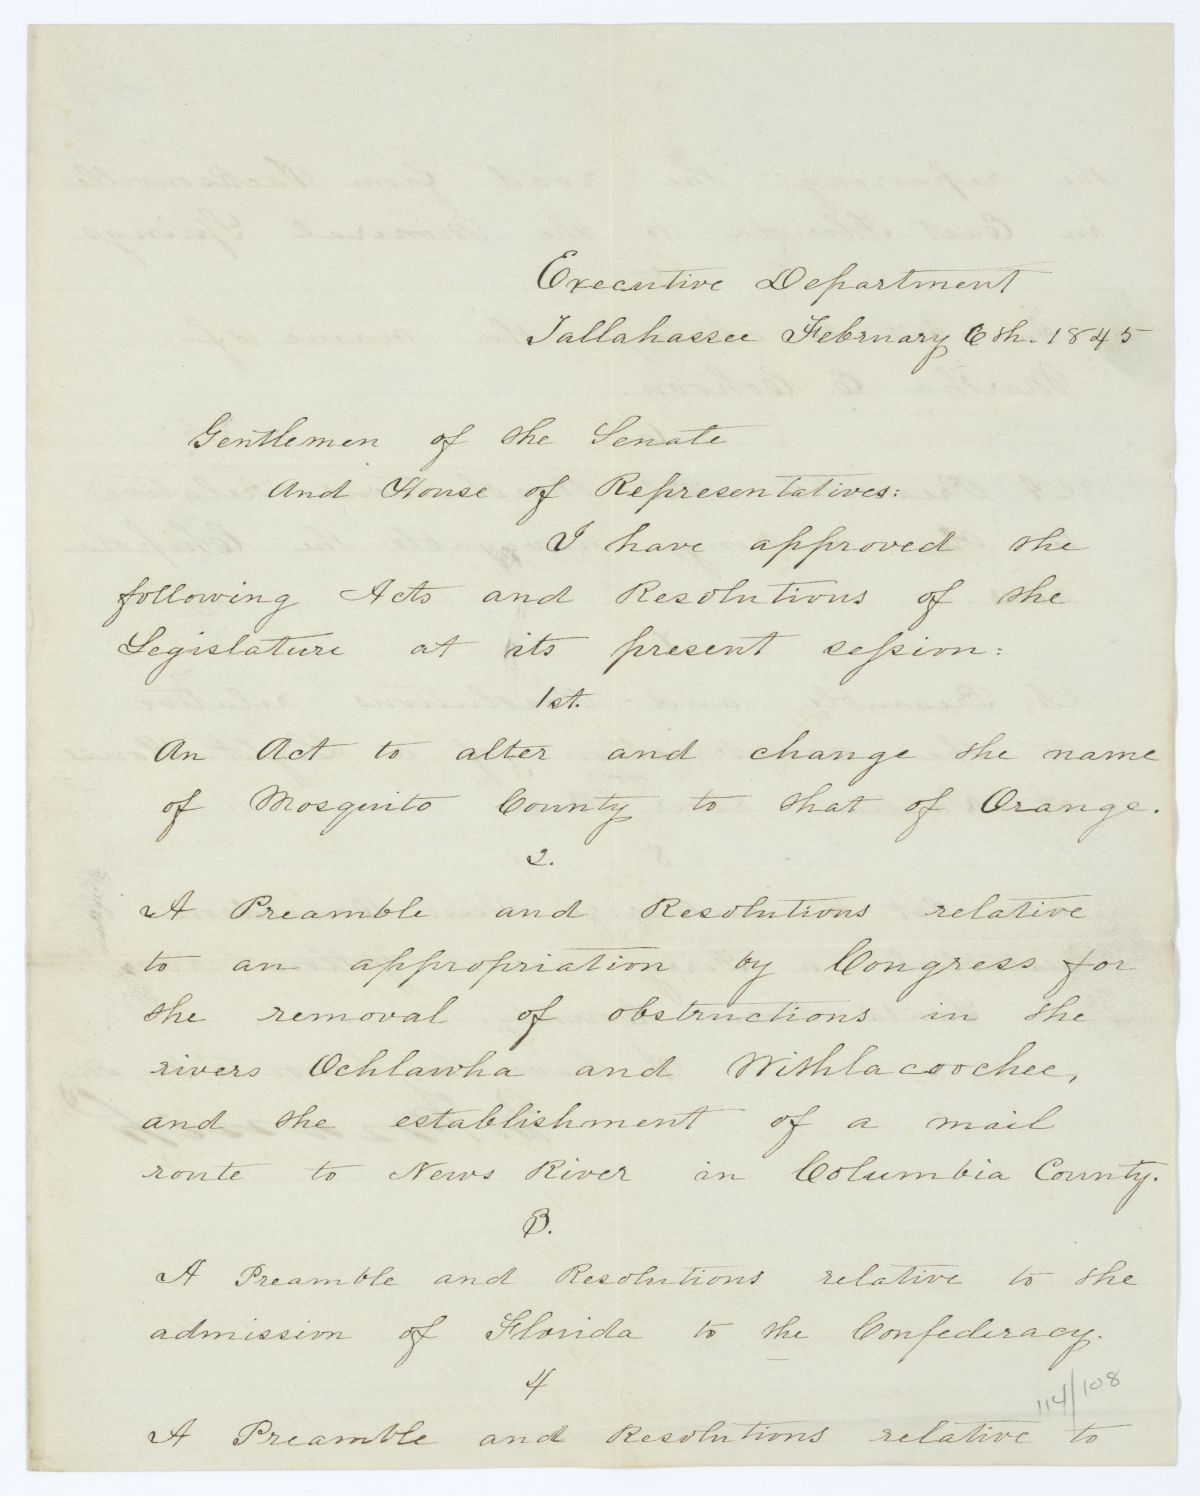 Executive Department
Tallahassee February 6th. 1845
Gentlemen of the Senate
And House of Representatives:
I have approved the
following Acts and Resolutions of the
Legislature at its present session:
1st.
An Act to alter and change the name
of Mosquito County to that of Orange.
2.
A Preamble and Resolutions relative
to an appropriation by Congress for
the removal of obstructions in the
rivers Ochlawha and Withlacoochee,
and the establishment of a mail
route to News River in Columbia County.
3.
A Preamble and Resolutions relative to the
admission of Florida to the Confederacy.
4
114/108
A Preamble and Resolutions relative to